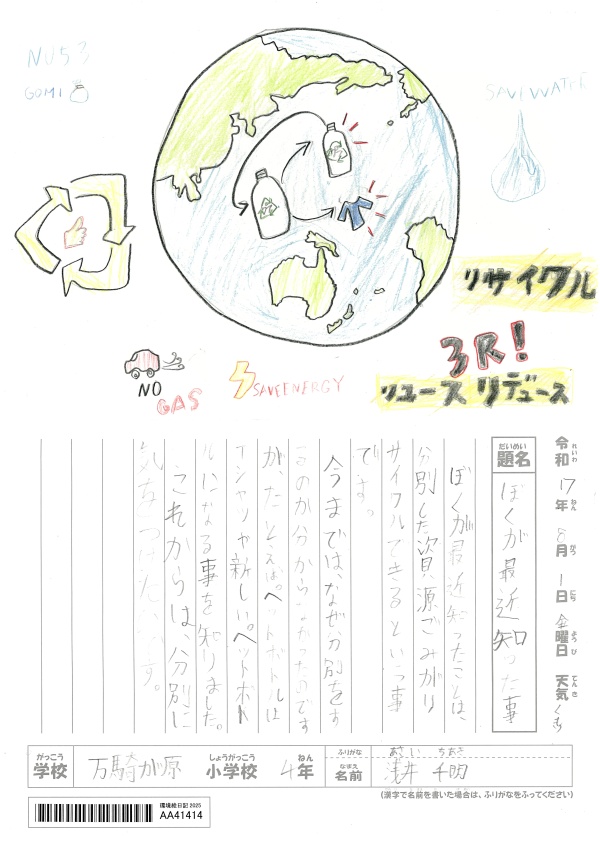 NO53
GOMI
SAVEWATER
リサイクル
3R!
リユース リデュース
NO
GAS
SAVEENERGY
令和7年8月1日金曜日 天気
れいわ ねん がつ にち ようび てんき
だいめい
題名
ぼくが最近知った事
ぼくが最近知ったことは、
分別した資源ごみがリ
サイクルできるという事
です。
今までは、なぜ分別をす
るのか分からなかったのです
が、たとえばペットボトルは
Tシャツや新しいペットボト
ルになる事を知りました。
これからは、分別に
気をつけたいです。
がっこう
学校
万騎が原
しょうがっこう
小学校
ねん
4年
ふりがな
あさい ちあき
なまえ
名前
浅井 千明
(漢字で名前を書いた場合は、ふりがなをふってください)
環境絵日記 2025
AA41414